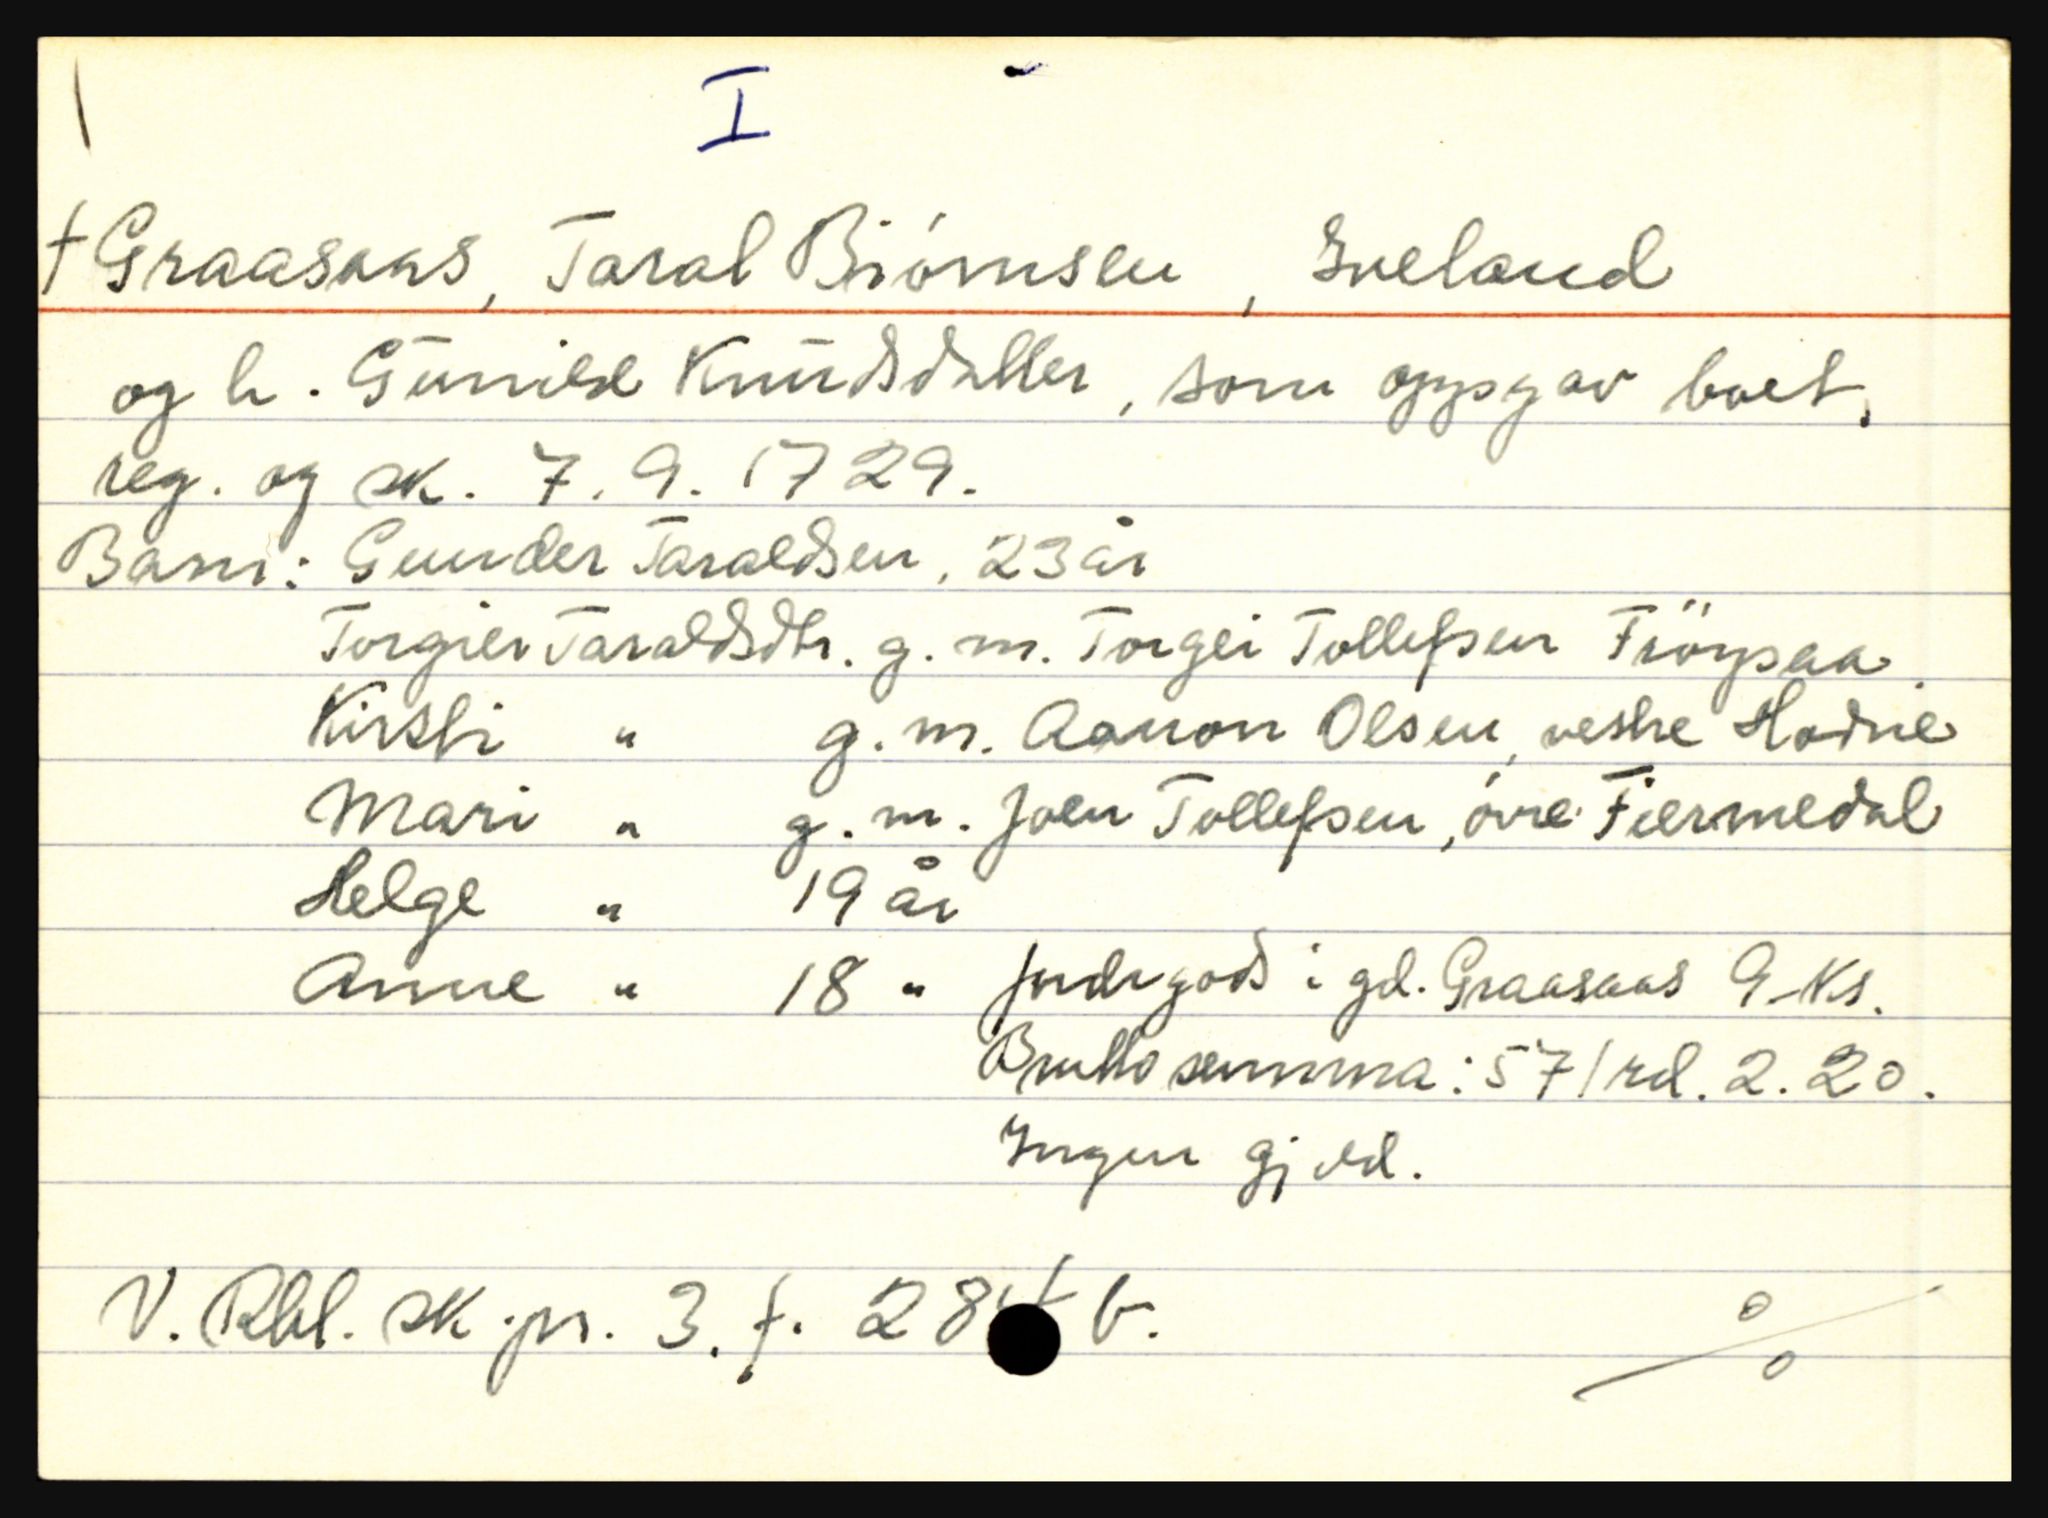 I
† Graasaas, Taral Biörnsen, Iveland
og h. Gunild Knudsdatter, som oppgav boet.
reg. og sk. 7.9.1729.
Barn: Gunder Taraldsen, 23 år
Torgier Taraldsdtr. g. m. Torgei Tollefsen Fröysaa
Kirsti " g. m. Aanon Olsen, vestre Hodne
Mari " g. m. Joen Tollefsen, övre Fiermedal
Helge " 19 år
Anne " 18 " Jordegods i gd. Graasaas 9-Ks.
Brutto summa: 571 rd. 2. 20.
Ingen gjeld.
V. Rbl. sk. pr. 3. f. 284 b.